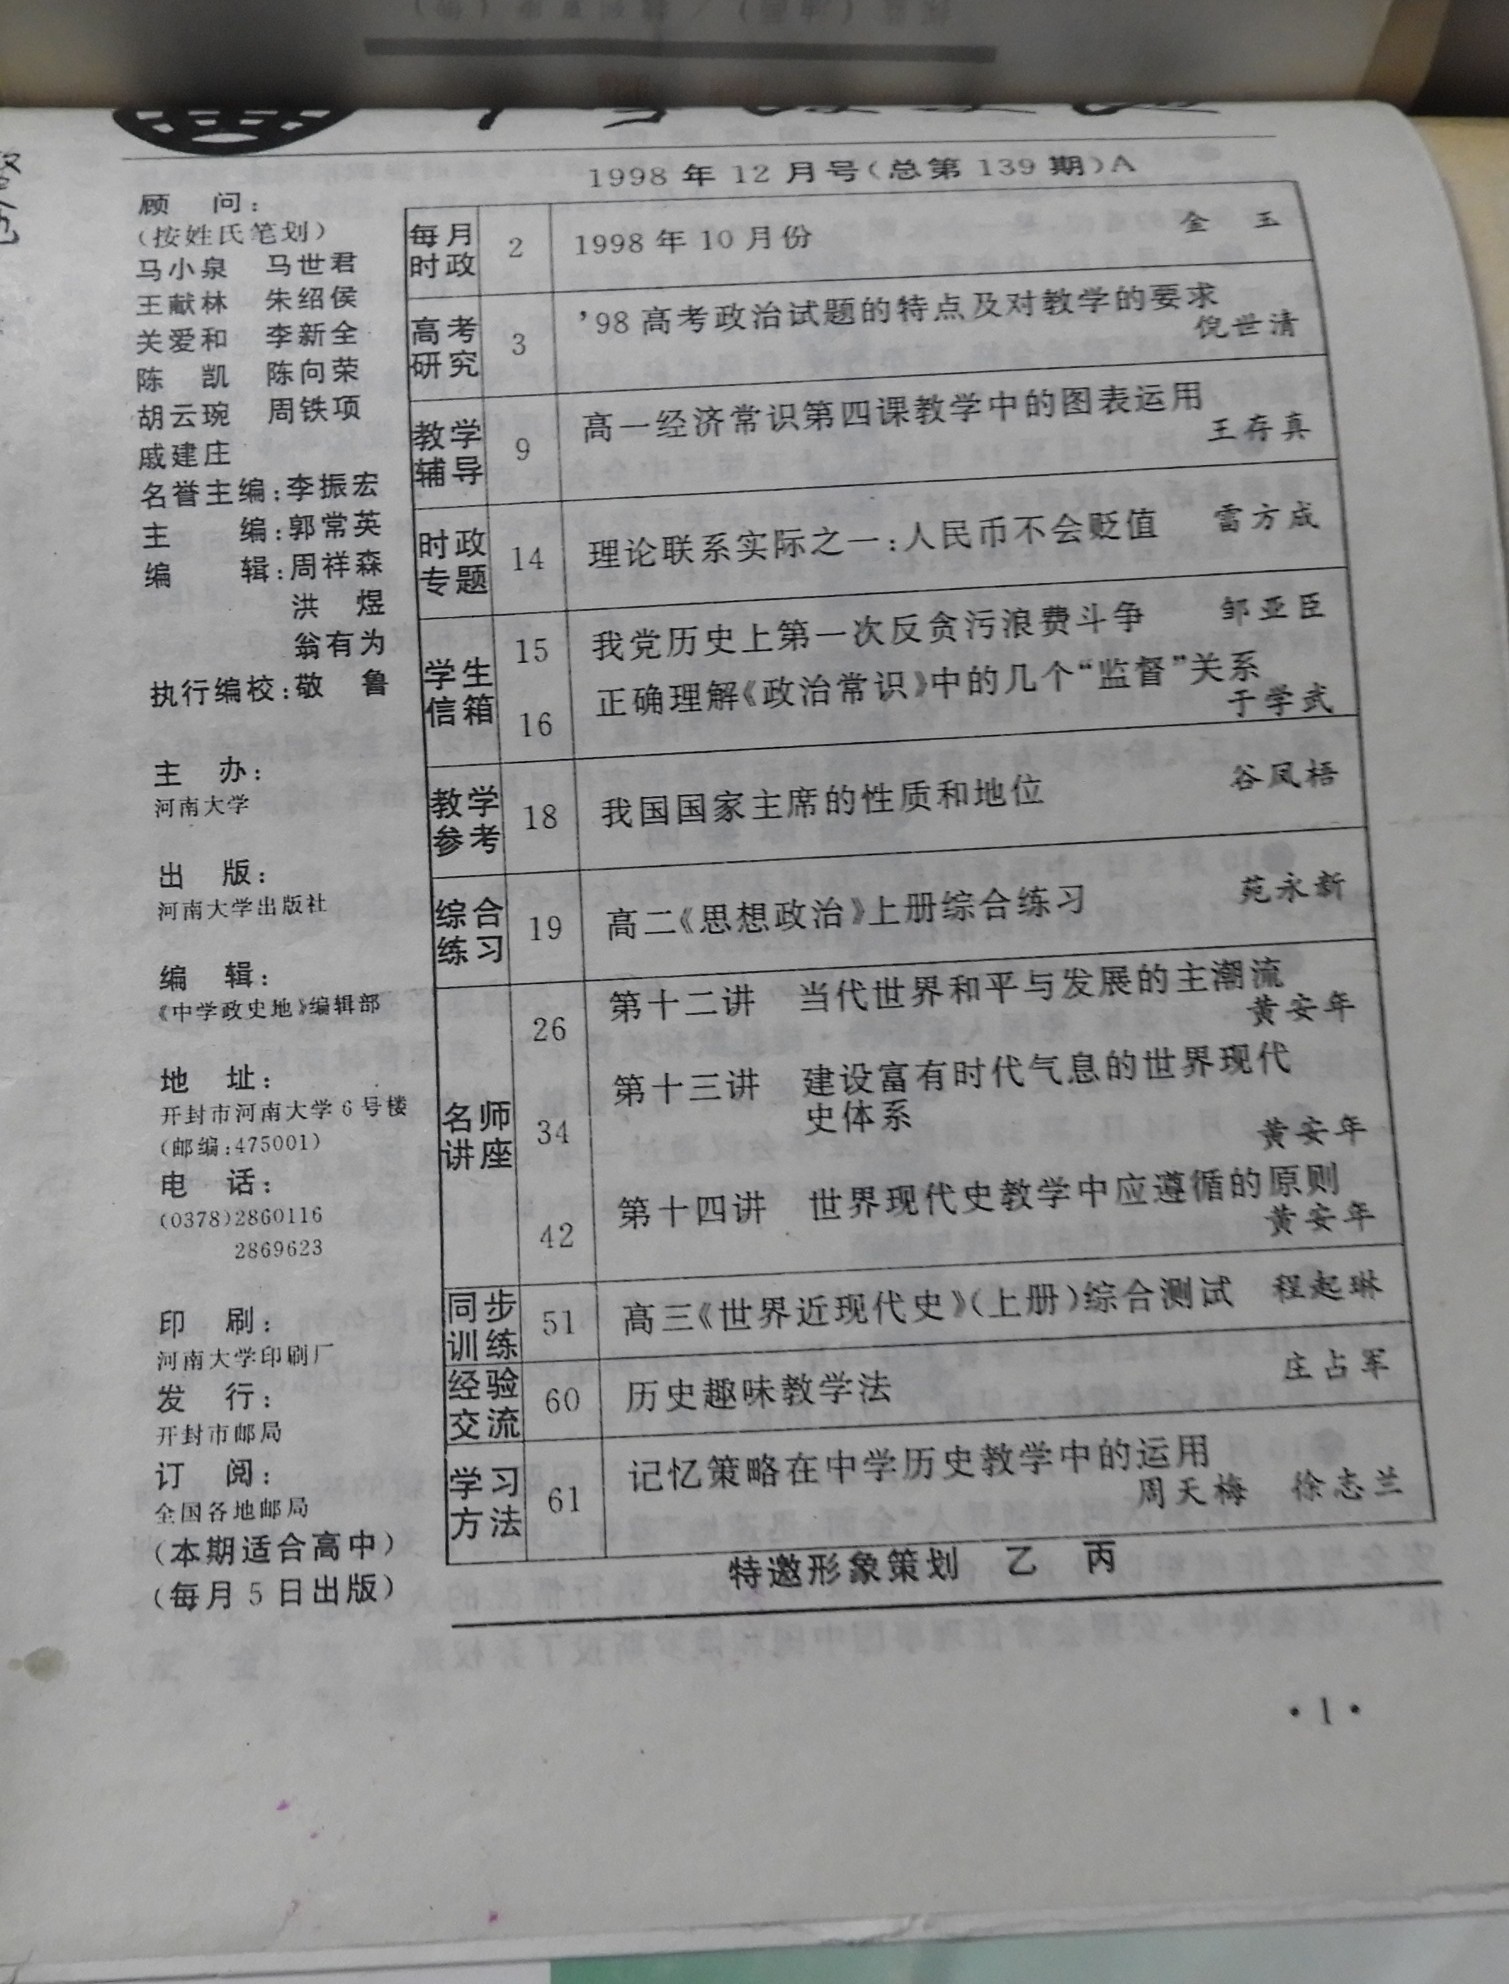 1998年12月号(总第139期)A
顾 问:
(按姓氏笔划)
马小泉 马世君
王献林 朱绍侯
关爱和 李新全
陈 凯 陈向荣
胡云琬 周铁项
戚建庄
名誉主编:李振宏
主 编:郭常英
编 辑:周祥森
洪 煜
翁有为
执行编校:敬 鲁
主 办:
河南大学
出 版:
河南大学出版社
编 辑:
《中学政史地》编辑部
地 址:
开封市河南大学6号楼
(邮编:475001)
电 话:
(0378)2860116
2869623
印 刷:
河南大学印刷厂
发 行:
开封市邮局
订 阅:
全国各地邮局
(本期适合高中)
(每月5日出版)
每月
时政
2 1998年10月份 金 玉
高考
研究
3 '98高考政治试题的特点及对教学的要求
倪世清
教学
辅导
9 高一经济常识第四课教学中的图表运用
王存真
时政
专题
14 理论联系实际之一:人民币不会贬值 雷方成
学生
信箱
15 我党历史上第一次反贪污浪费斗争 邹亚臣
16 正确理解《政治常识》中的几个“监督”关系
于学武
教学
参考
18 我国国家主席的性质和地位 谷凤梧
综合
练习
19 高二《思想政治》上册综合练习 苑永新
名师
讲座
26 第十二讲 当代世界和平与发展的主潮流
黄安年
34 第十三讲 建设富有时代气息的世界现代
史体系
黄安年
42 第十四讲 世界现代史教学中应遵循的原则
黄安年
同步
训练
51 高三《世界近现代史》(上册)综合测试 程起琳
经验
交流
60 历史趣味教学法 庄占军
学习
方法
61 记忆策略在中学历史教学中的运用
周天梅 徐志兰
特邀形象策划 乙 丙
·1·